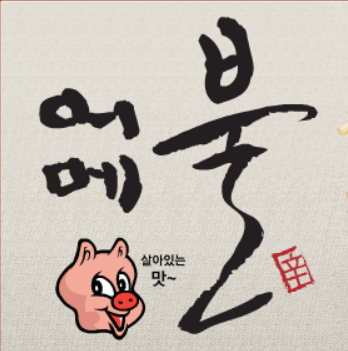 어메
불
살아있는
맛~